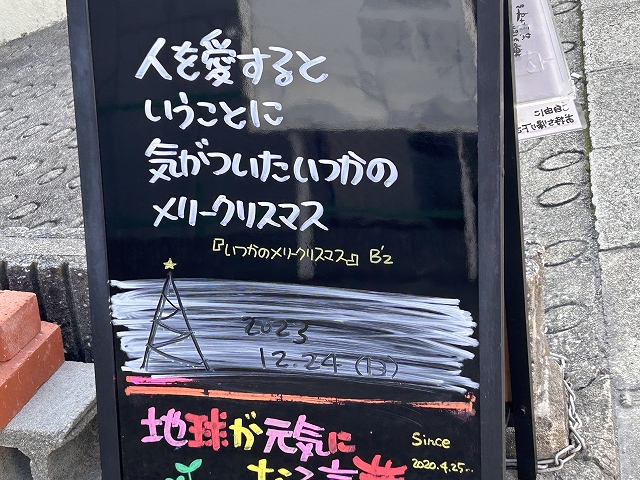 人を愛すると
いうことに
気がついたいつかの
メリークリスマス
『いつかのメリークリスマス』 B'z
2023
12.24(日)
地球が元気に
なる言葉
Since
2020.4.25...
ご自由に
お持ち帰り下さい